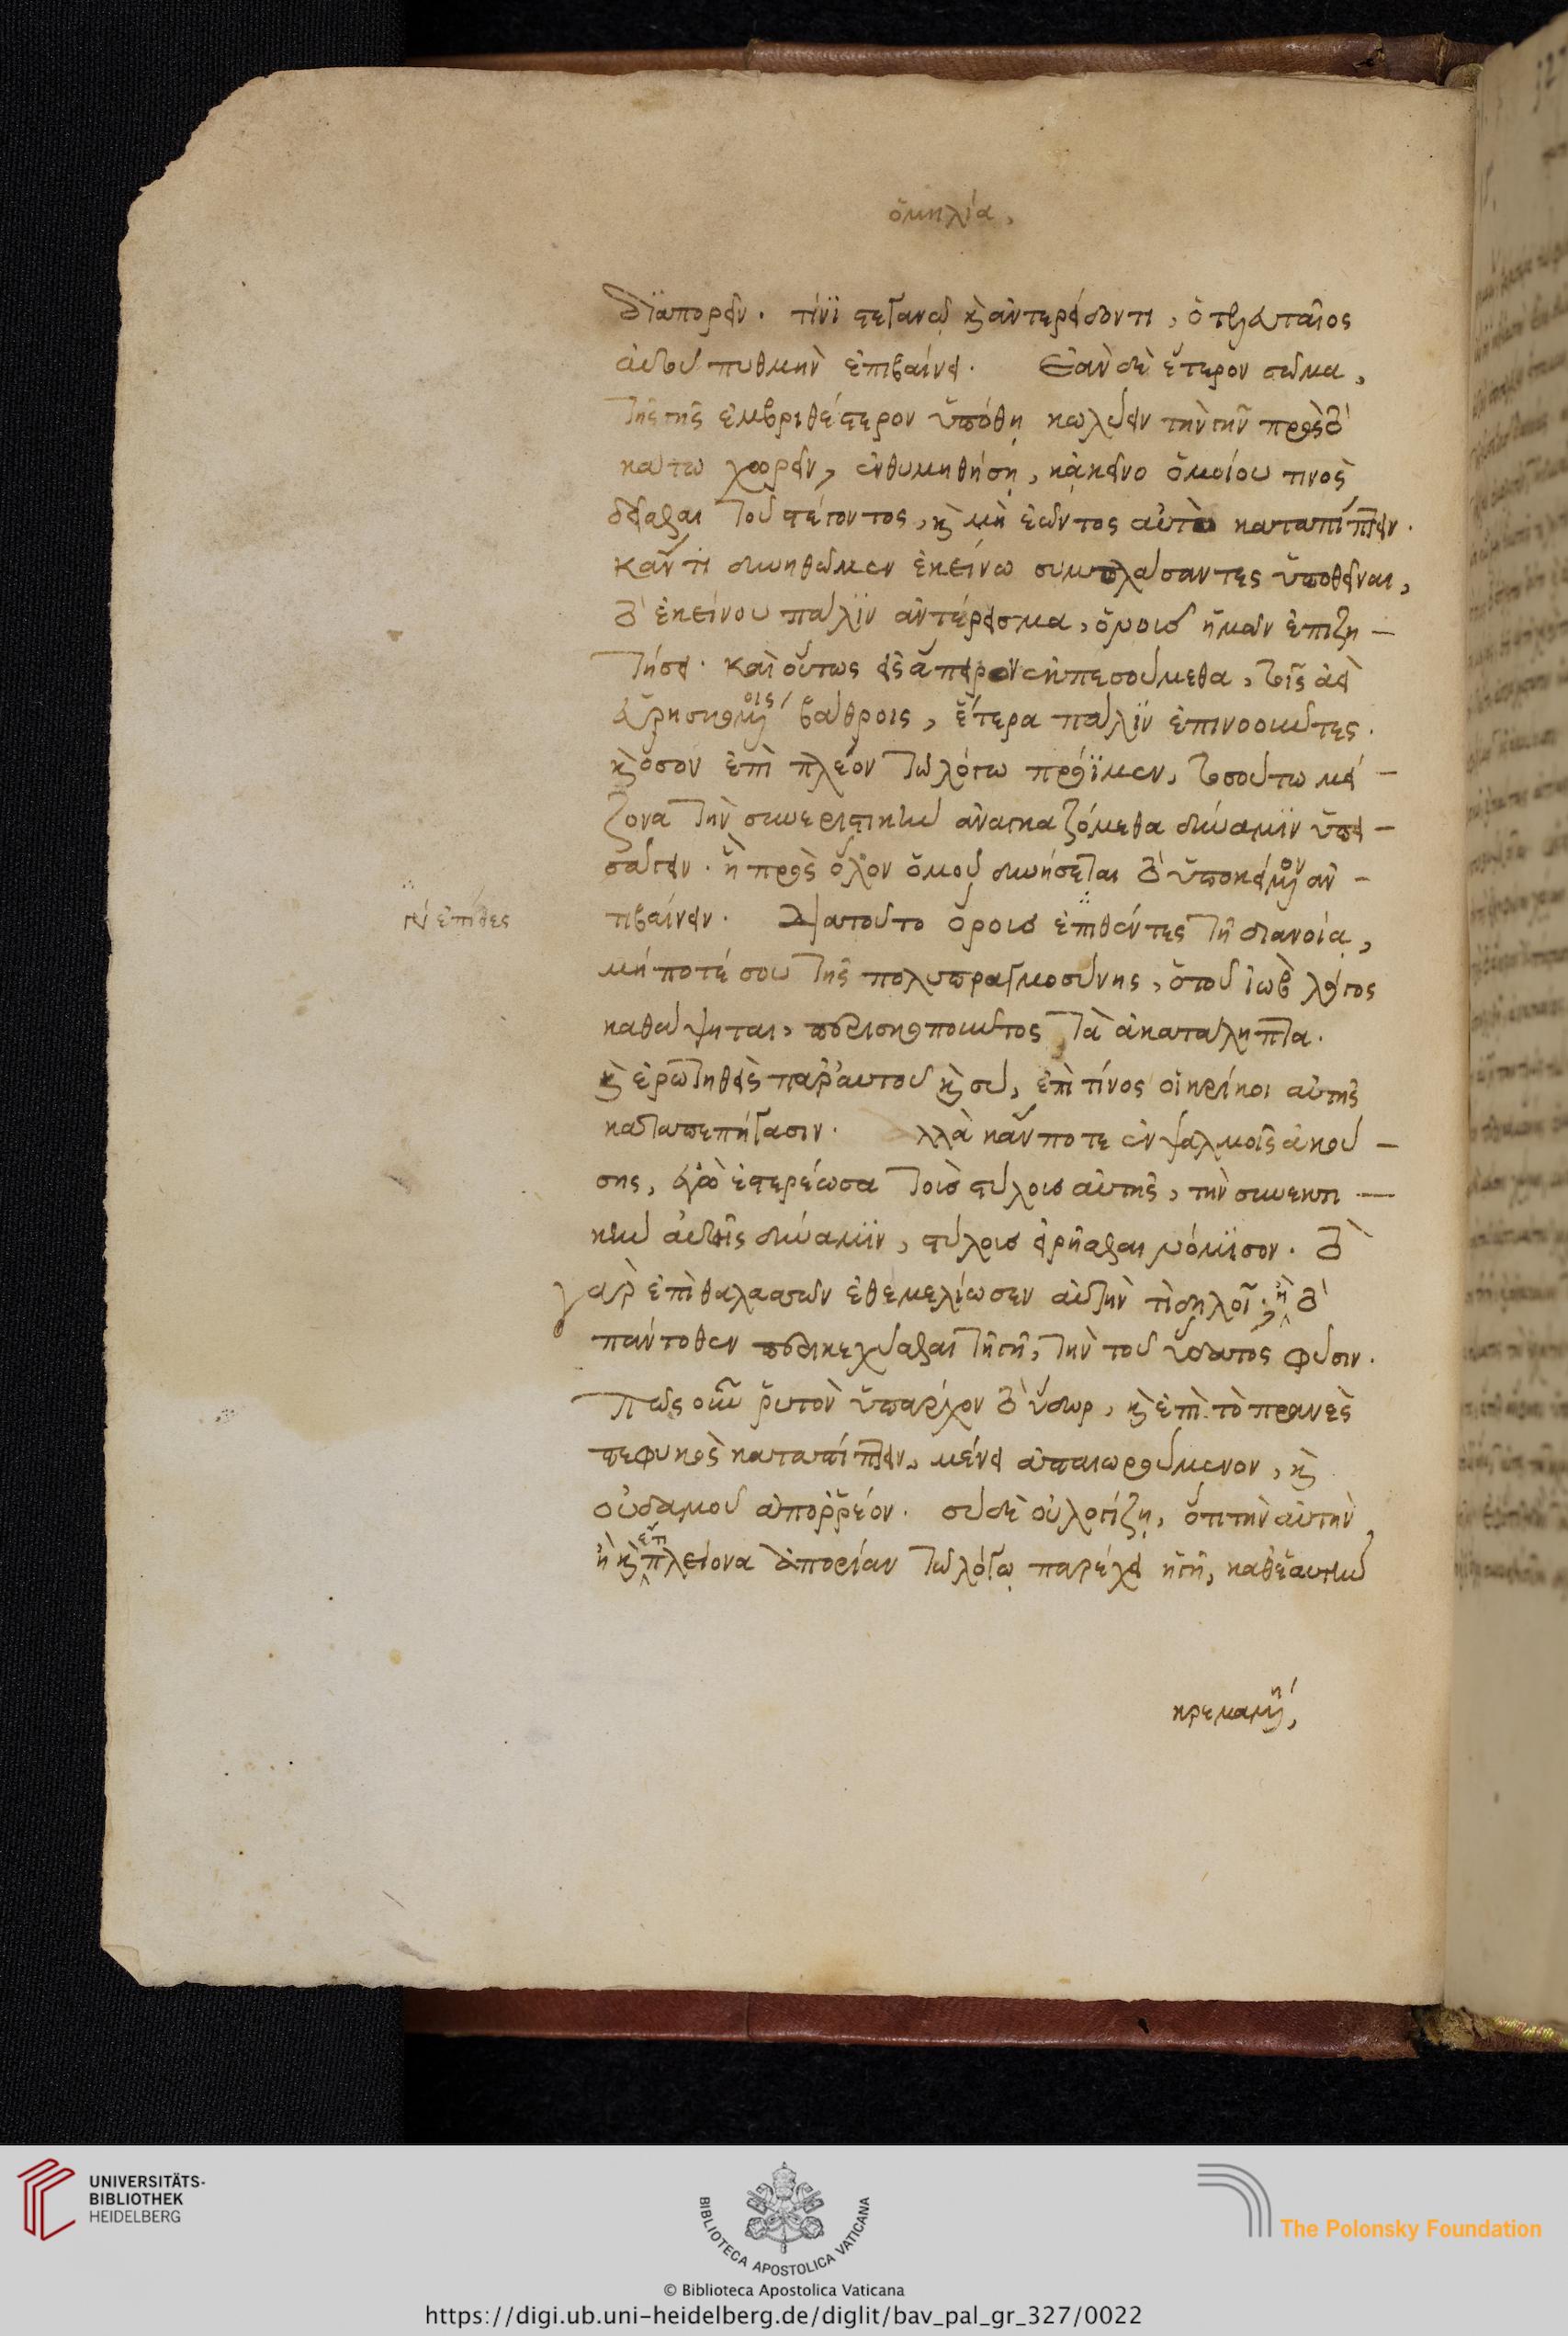 ὁμηλία,
διαπορεῖν. τίνι στεγανῷ καὶ ἀντερείδοντι, ὁ τελευταῖος
αὐτοῦ πυθμὴν ἐπιβαίνει. Ἐὰν δὲ ἕτερον σῶμα,
τῆς γῆς ἐμβριθέστερον ὑπόθῃ κωλύειν τὴν γῆν πρὸς τὸ
κάτω χωρεῖν, ἐνθυμηθήσῃ, κἀκεῖνο ὁμοίου τινος
δεῖσθαι τοῦ στέγοντος, καὶ μὴ ἐῶντος αὐτὸ καταπίπτειν.
κἄν τι δυνηθῶμεν ἐκείνω συμπλάσαντες ὑποθεῖναι,
τὸ ἐκείνου πάλιν ἀντέρεισμα, ὁ νοῦς ἡμῶν ἐπιζη-
τήσει. καὶ οὕτως εἰς ἄπειρον ἐκπεσούμεθα, τοῖς ἀεὶ
εὑρισκομένοις βάθροις, ἕτερα πάλιν ἐπινοοῦντες.
καὶ ὅσον ἐπὶ πλέον τῷ λόγω προΐμεν, τοσούτω μεί-
ζονα τὴν συνεριστικὴν ἀναγκαζόμεθα δύναμιν ὑπει-
σάγειν. ἢ πρὸς ὅλον ὁμοῦ δυνήσεται τὸ ὑποκείμενον ἀν-
τιβαίνειν. Διατοῦτο ὅρους ἐπιθέντες τῇ διανοίᾳ,
νῦ ἐπίθες
μήποτέ σου τῆς πολυπραγμοσύνης, ὁ τοῦ ἰὼβ λόγος
καθάψηται, περισκοποῦντος τὰ ἀκατάληπτα.
καὶ ἐρωτηθεὶς παρ' αυτοῦ καὶ σὺ, ἐπὶ τίνος οἱ κρίκοι αὐτῆς
καταπεπήγασιν. λλὰ κἄν ποτε ἐν ψαλμοῖς ἀκού-
σης, ἐγὼ ἐστερέωσα τοὺς στύλους αὐτῆς, τὴν συνεκτι-
κὴν αὐτῆς δύναμιν, στύλους εἰρῆσθαι νόμισον. τὸ
γὰρ ἐπὶ θαλασσῶν ἐθεμελίωσεν αὐτὴν τί δηλοῖ, ἢ τὸ
πάντοθεν περικεχύσθαι τῇ γῇ, τὴν τοῦ ὕδατος φύσιν.
Πῶς οὖν ῥυτὸν ὑπάρχον τὸ ὕδωρ, καὶ ἐπὶ τὸ πρανὲς
πεφυκὸς καταπίπτειν, μένει ἀπαιωρούμενον, καὶ
οὐδαμοῦ ἀπορρέον. σὺ δὲ οὐ λογίζῃ, ὅτι τὴν αὐτὴν
ἢ καὶ ἔτι πλείονα ἀπορίαν τῷ λόγῳ παρέχει ἡ γῆ, καθ' ἑαυτὴν
κρεμαμένη,
UNIVERSITÄTS-
BIBLIOTHEK
HEIDELBERG
BIBLIOTECA APOSTOLICA VATICANA
© Biblioteca Apostolica Vaticana
The Polonsky Foundation
https://digi.ub.uni-heidelberg.de/diglit/bav_pal_gr_327/0022